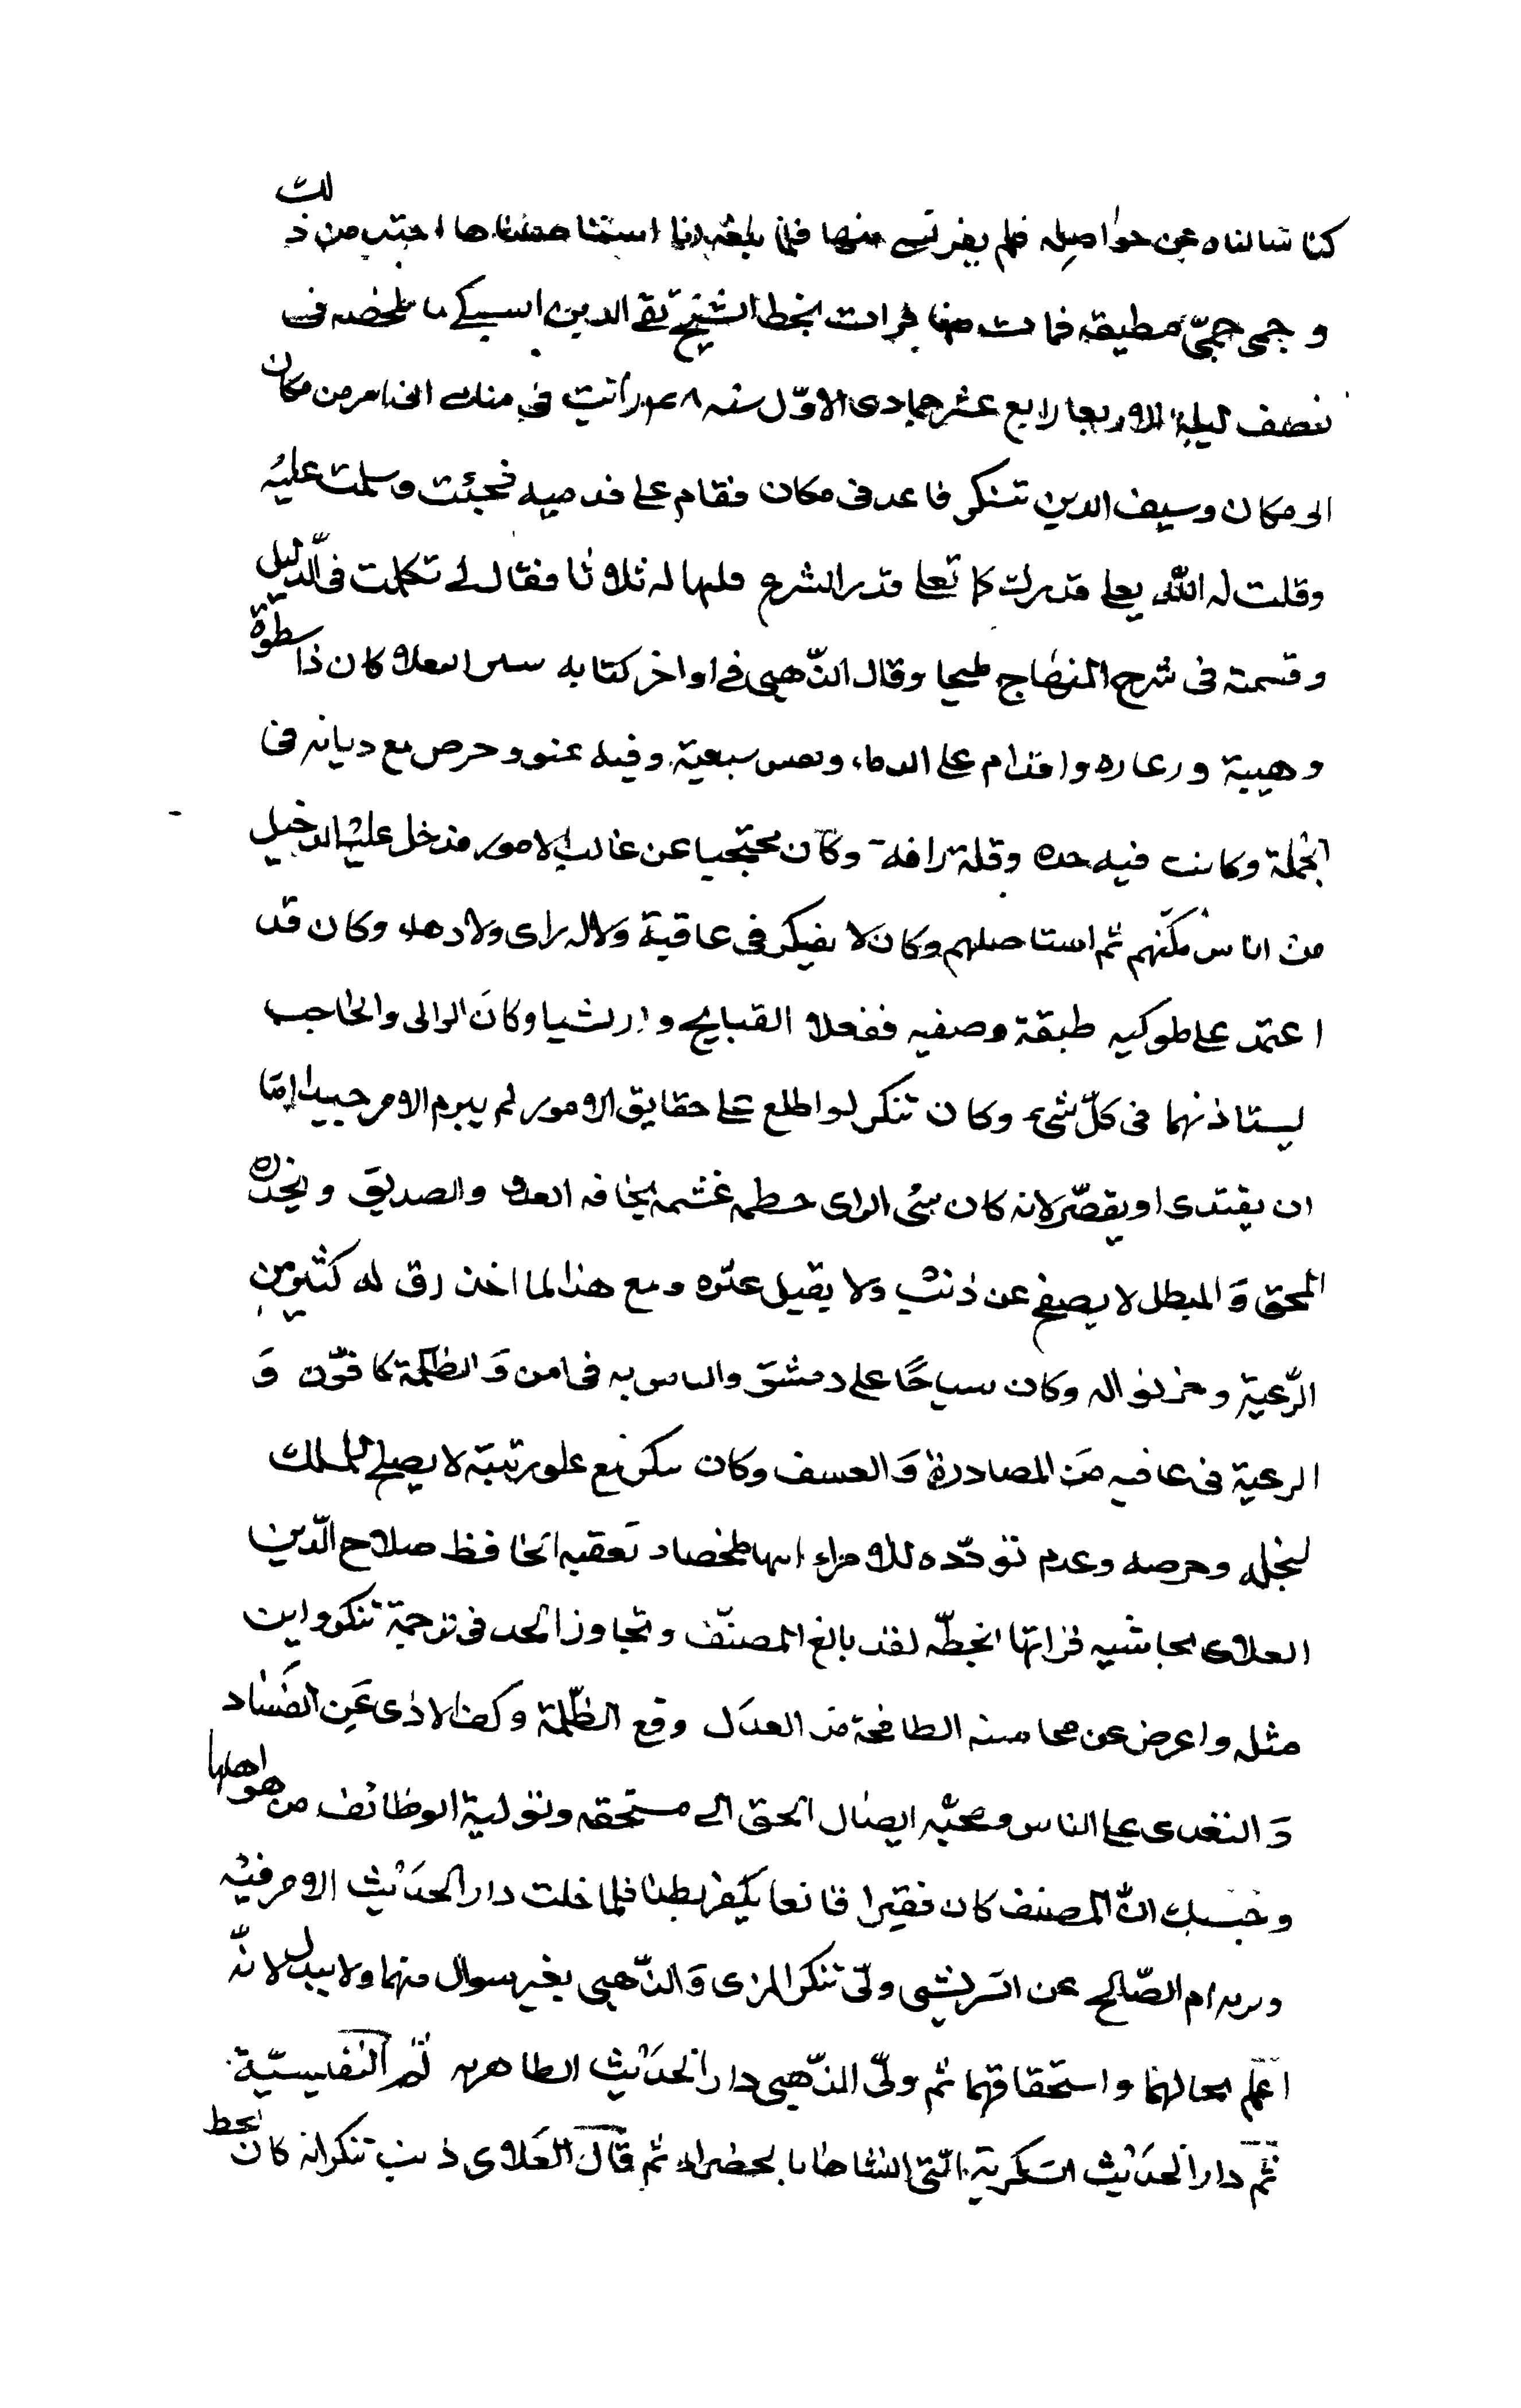 كنا سالناه عن حواصله فلم يقر بشى منها فلما بلغه اننا استنتا احتد من ذلك
وحمى حمى مطبقه فمات منها قرات بخط الشيخ تقى الدين السبكى ما ملخصه فى
نصف ليلة الاربعا رابع عشر جمادى الاول سنه رايت فى منامى الناصر من مكان
الى مكان وسيف الدين تنكز قاعد فى مكان فقام على قدميه فجئت وسلمت عليه
وقلت له الله يعلى قدرك كما تعلى قدر الشرع قلتها له ثلاثا فقال لى تكلمت فى الدليل
وقسمته فى شرح المنهاج مليحا وقال الذهبى فى اواخر كتابه سير النبلا كان ذا سطوة
وهيبة وزعاره واقدام على الدماء ونفس سبعية وفيه عتو وحرص مع ديانه فى
الجملة وكانت فيه حده وقلة رافه وكان محتجبا عن غالب الامور فدخل عليه الدخيل
من اناس مكنهم ثم استاصلهم وكان لا يفكر فى عاقبة ولا له راى ولا دهاء وكان قد
اعتمد على مملوكيه طبقة وصفيه ففعلا القبايح وارتشيا وكان الوالى والحاجب
يستاذنهما فى كل شىء وكان تنكز لو اطلع على حقايق الامور لم يبرم الامر جيدا اما
ان يعتدى او يقصر لانه كان سئ الراى حطمه غشمه يخافه العدو والصديق ويحذره
المحق والمبطل لا يصفح عن ذنب ولا يقيل عثره ومع هذا لما اخذ رق له كثير من
الرعية وحزنوا له وكان سياجا على دمشق والناس به فى امن والظلمة كافون و
الرعية فى عافيه من المصادرة والعسف وكان تنكز مع علو رتبته لا يصلح للملك
لبخله وحرصه وعدم تودده للامراء انتهى ملخصا وتعقبه الحافظ صلاح الدين
العلاى بحاشيه قراتها بخطه لقد بالغ المصنف وتجاوز الحد فى ترجمة تنكز واين
مثله واعرض عن محاسنه الطافحة من العدل وقمع الظلمة وكف الاذى عن الفساد
والتعدى على الناس ومحبته ايصال الحق الى مستحقه وتولية الوظائف من هو اهلها
وحسبك ان المصنف كان فقيرا قانعا بكفر بطنا فلما خلت دار الحديث الاشرفيه
وتربه ام الصالح عن الشريشى ولى تنكز المزى والذهبى بغير سوال منهما ولا ببذل لانه
اعلم بحالهما واستحقاقهما ثم ولى الذهبى دار الحديث الظاهريه ثم النفيسية
ثم دار الحديث التنكزية التى انشاها ثم قال العلاى ذنب تنكز انه كان يحط